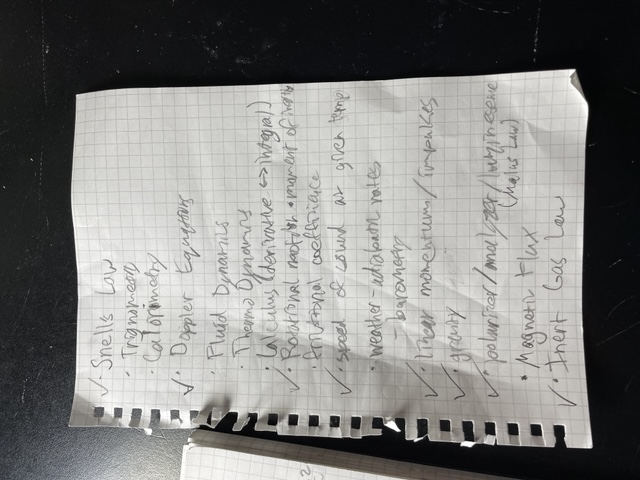 ✓ • Snells Law
• Trignometry
• Calorimetry
✓ • Doppler Equations
• Fluid Dynamics
• Thermo Dynamics
• Calculus (derivative ↔ integral)
✓ • Rotational motion • moment of inertia
• frictional coefficience
✓ • speed of sound at given temp
• weather - adiabatic rates
- barometry
✓ • linear momentum / impulses
✓ • gravity
✓ • polarizer / analyzer /
(Malus Law)
• Magnetic Flux
✓ • Inert Gas Law
2